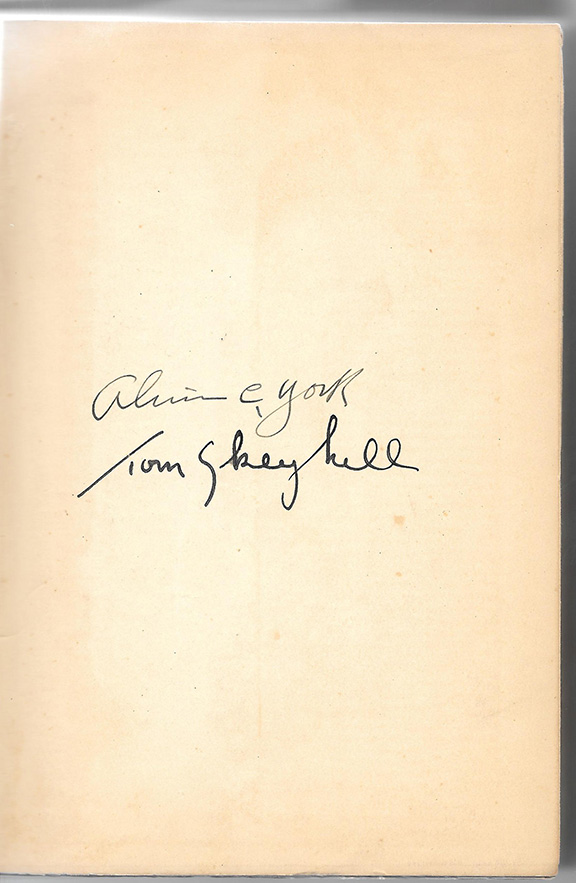 Alvin C. York
Tom Skeyhill